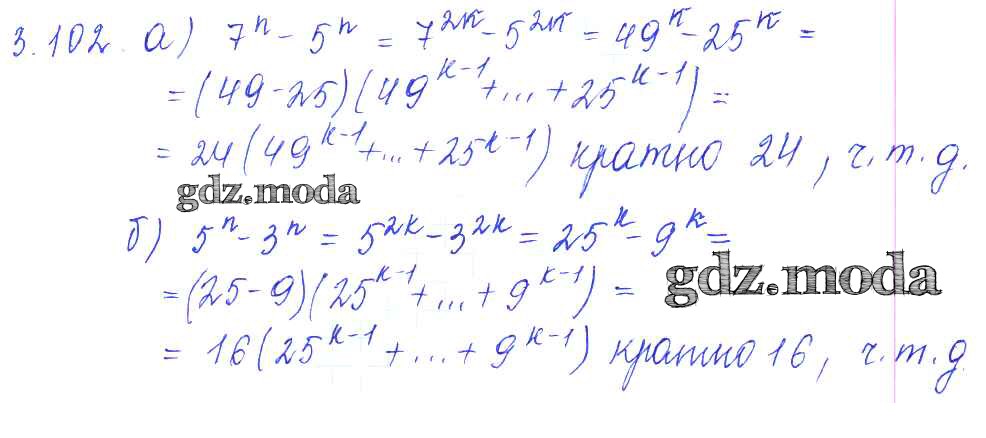 3.102. а) 7ⁿ - 5ⁿ = 7²ᵏ - 5²ᵏ = 49ᵏ - 25ᵏ =
= (49 - 25)(49ᵏ⁻¹ + ... + 25ᵏ⁻¹) =
= 24(49ᵏ⁻¹ + ... + 25ᵏ⁻¹) кратно 24, ч.т.д.
gdz.moda
б) 5ⁿ - 3ⁿ = 5²ᵏ - 3²ᵏ = 25ᵏ - 9ᵏ =
gdz.moda
= (25 - 9)(25ᵏ⁻¹ + ... + 9ᵏ⁻¹) =
= 16(25ᵏ⁻¹ + ... + 9ᵏ⁻¹) кратно 16, ч.т.д.